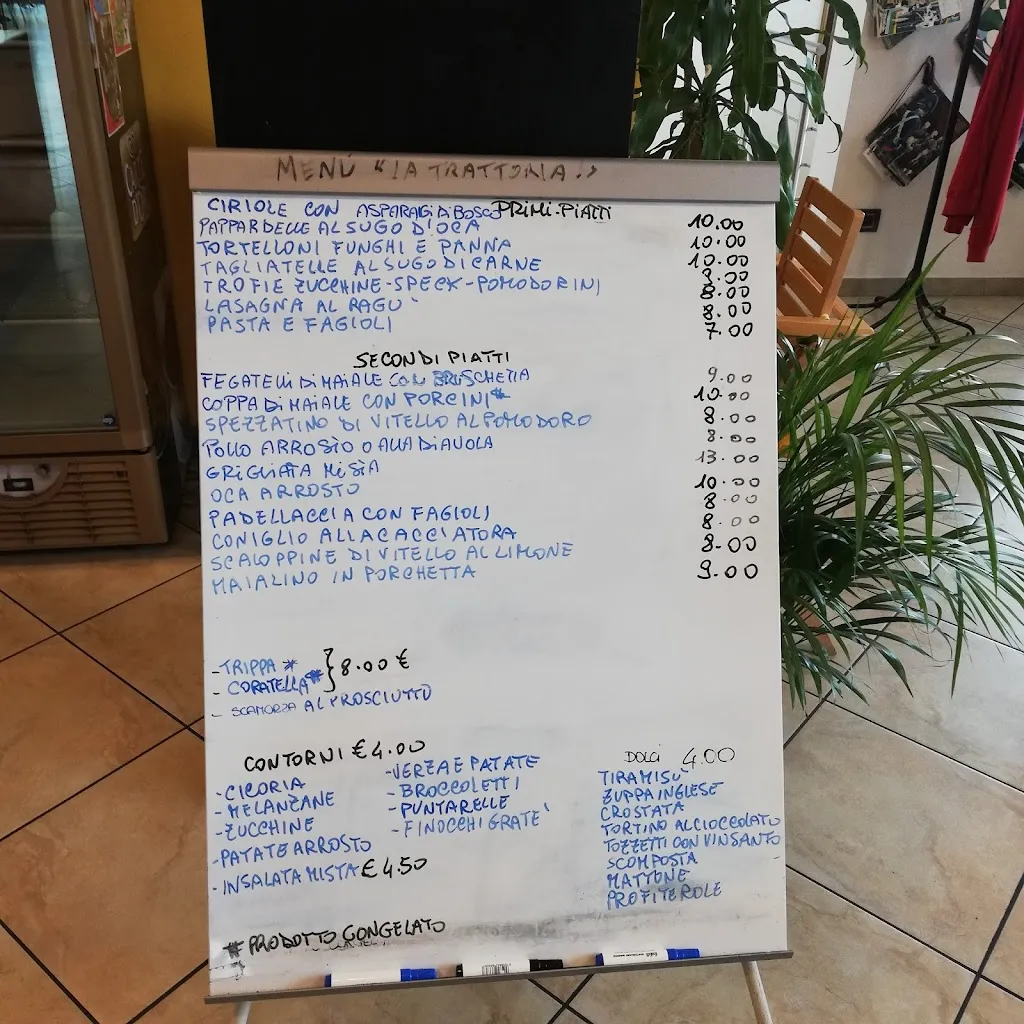 MENÚ "LA TRATTORIA"
PRIMI-PIATTI
CIRIOLE CON ASPARAGI DI BOSCO 10.00
PAPPARDELLE AL SUGO D'OCA 10.00
TORTELLONI FUNGHI E PANNA 10.00
TAGLIATELLE AL SUGO DI CARNE 9.00
TROFIE ZUCCHINE-SPECK-POMODORINI 8.00
LASAGNA AL RAGU' 8.00
PASTA E FAGIOLI 7.00
SECONDI PIATTI
FEGATELLI DI MAIALE CON BRUSCHETTA 9.00
COPPA DI MAIALE CON PORCINI* 10.00
SPEZZATINO DI VITELLO AL POMODORO 8.00
POLLO ARROSTO O ALLA DIAVOLA 8.00
GRIGLIATA MISTA 13.00
OCA ARROSTO 10.00
PADELLACCIA CON FAGIOLI 8.00
CONIGLIO ALLA CACCIATORA 8.00
SCALOPPINE DI VITELLO AL LIMONE 8.00
MAIALINO IN PORCHETTA 9.00
- TRIPPA *
- CORATELLA * } 8.00 €
- SCAMORZA AL PROSCIUTTO
CONTORNI € 4.00
- CICORIA
- MELANZANE
- ZUCCHINE
- PATATE ARROSTO
- INSALATA MISTA € 4.50
- VERZA E PATATE
- BROCCOLETTI
- PUNTARELLE
- FINOCCHI GRATE'
DOLCI 4.00
TIRAMISU'
ZUPPA INGLESE
CROSTATA
TORTINO AL CIOCCOLATO
TOZZETTI CON VINSANTO
SCOMPOSTA
MATTONE
PROFITEROLE
* PRODOTTO CONGELATO